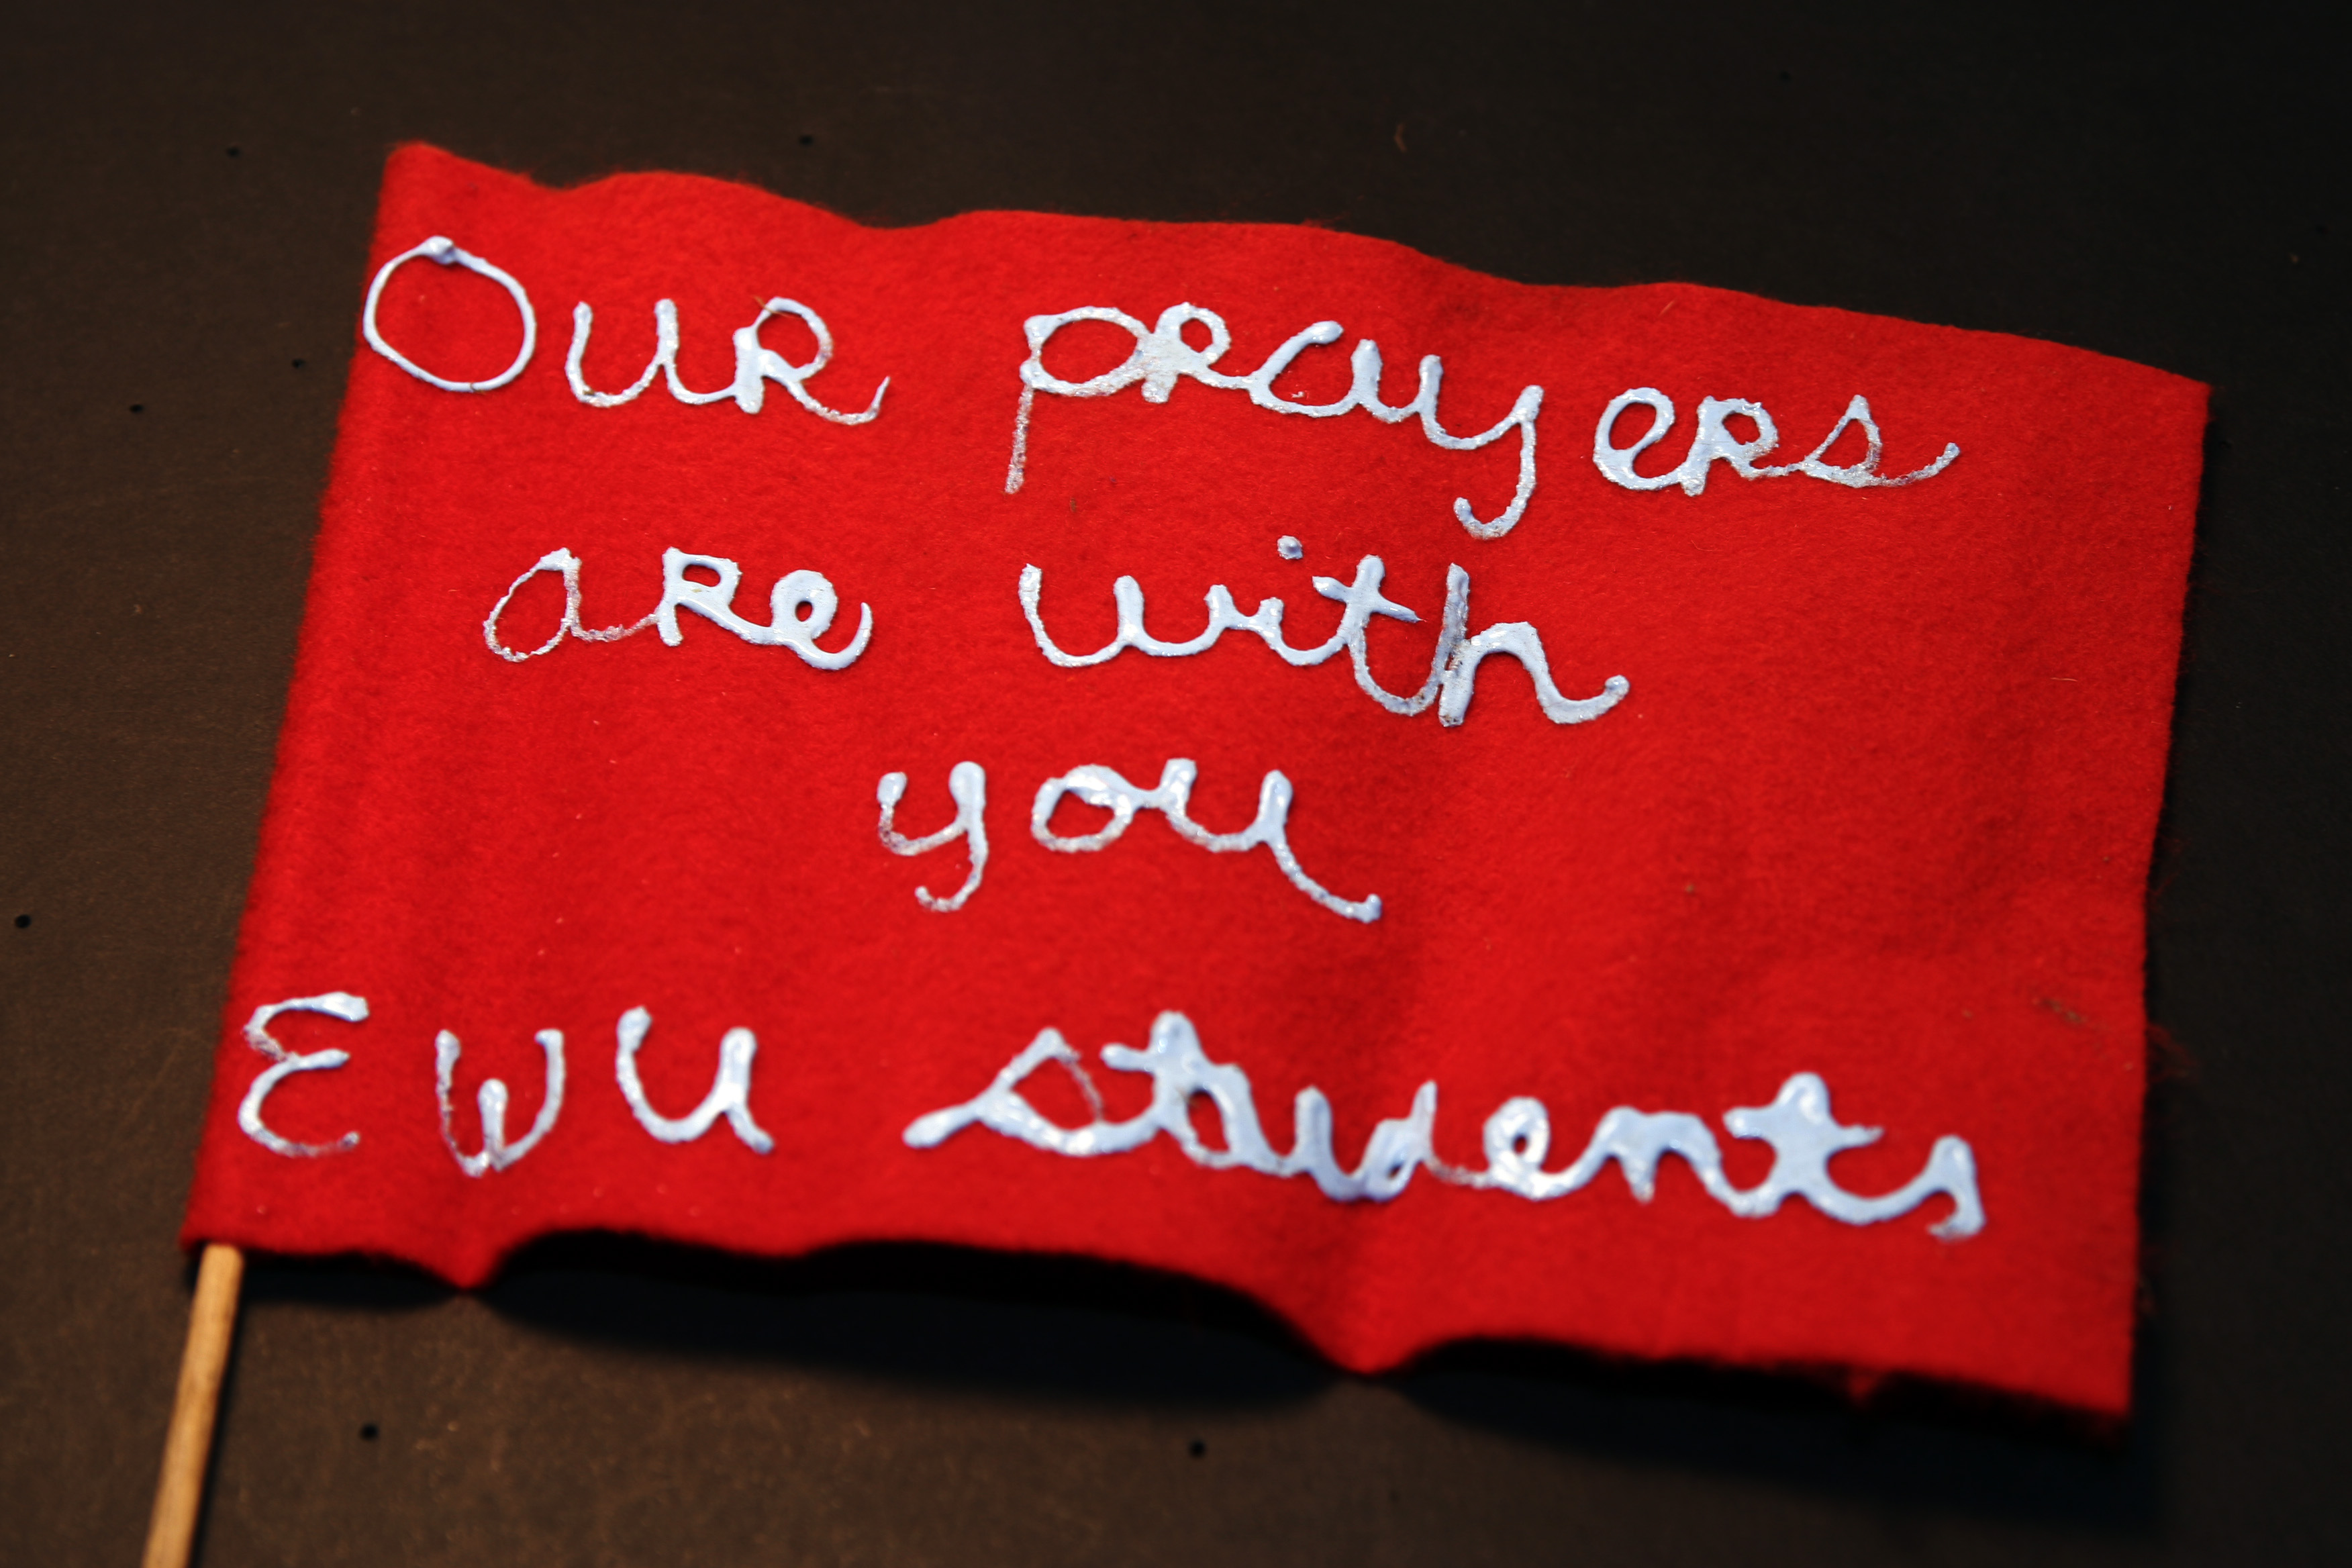 Our prayers
are with
you
EWU students